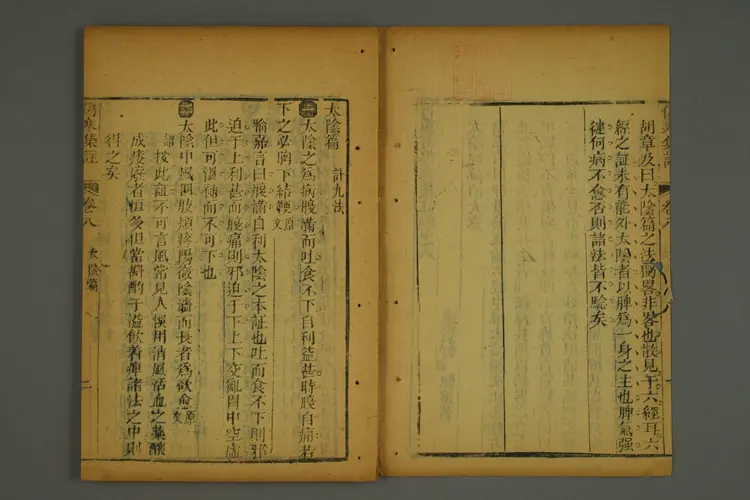 胡章及曰太陰篇之法獨畧非畧也散見于六經耳六
經之証未有能外太陰者以脾爲一身之主也脾氣强
健何病不愈否則諸法皆不驗矣
太陰篇 計九法
太陰之爲病腹滿而吐食不下自利益甚時腹自痛若
下之必胸下結鞕 原文
喻嘉言曰腹滿自利太陰之本証也吐而食不下則邪
迫于上利甚而腹痛則邪迫于下上下交亂胃中空虛
此但可溫補而不可下也
太陰中風四肢煩疼陽微陰濇而長者爲欲愈 原文
按此証不可言風當見人悞用消風活血之藥釀
成痿痺者恒多但當斟酌于溢飲着痺諸法之中則
得之矣
傷寒集註 卷八 太陰篇